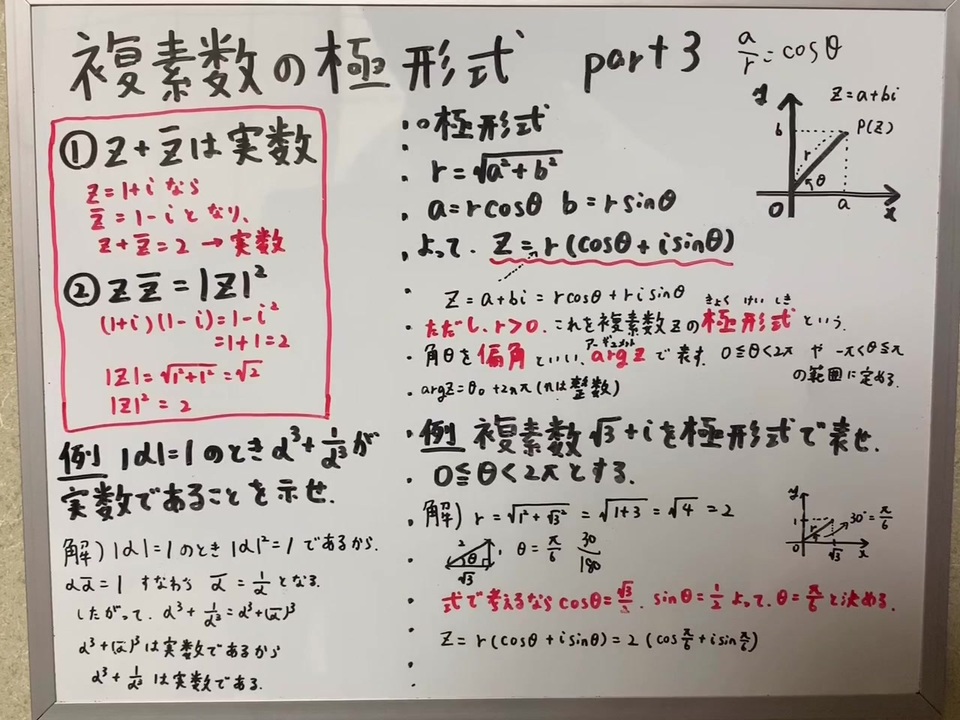 複素数の極形式 part 3
a/r = cosθ
① Z + Z̅は実数
Z = 1+i なら
Z̅ = 1-i となり、
Z + Z̅ = 2 → 実数
② Z Z̅ = |Z|²
(1+i)(1-i) = 1-i²
= 1+1 = 2
|Z| = √1²+1² = √2
|Z|² = 2
例 |α|=1 のとき α³ + 1/α³ が
実数であることを示せ.
解) |α|=1 のとき |α|²=1 であるから.
αα̅ = 1 すなわち α̅ = 1/α となる.
したがって. α³ + 1/α³ = α³ + (α̅)³
α³ + (α̅)³ は実数であるから
α³ + 1/α³ は実数である.
○極形式
r = √a²+b²
a = r cosθ b = r sinθ
よって. Z = r (cosθ + i sinθ)
Z = a+bi = r cosθ + r i sinθ
きょく けい しき
ただし, r>0. これを複素数Zの極形式という.
アーギュメント
角θを偏角といい, arg Z で表す. 0≦θ<2π や -π<θ≦π
の範囲に定める.
arg Z = θ₀ + 2nπ (nは整数)
例 複素数 √3 + i を極形式で表せ.
0≦θ<2π とする.
解) r = √1²+√3² = √1+3 = √4 = 2
2 θ 1 √3 θ = π/6 30/180
式で考えるなら cosθ = √3/2. sinθ = 1/2 よって. θ = π/6 と決める.
Z = r (cosθ + i sinθ) = 2 (cos π/6 + i sin π/6)
y Z = a+bi
b P(Z)
r
θ
O a x
y
1 30° = π/6
O √3 x